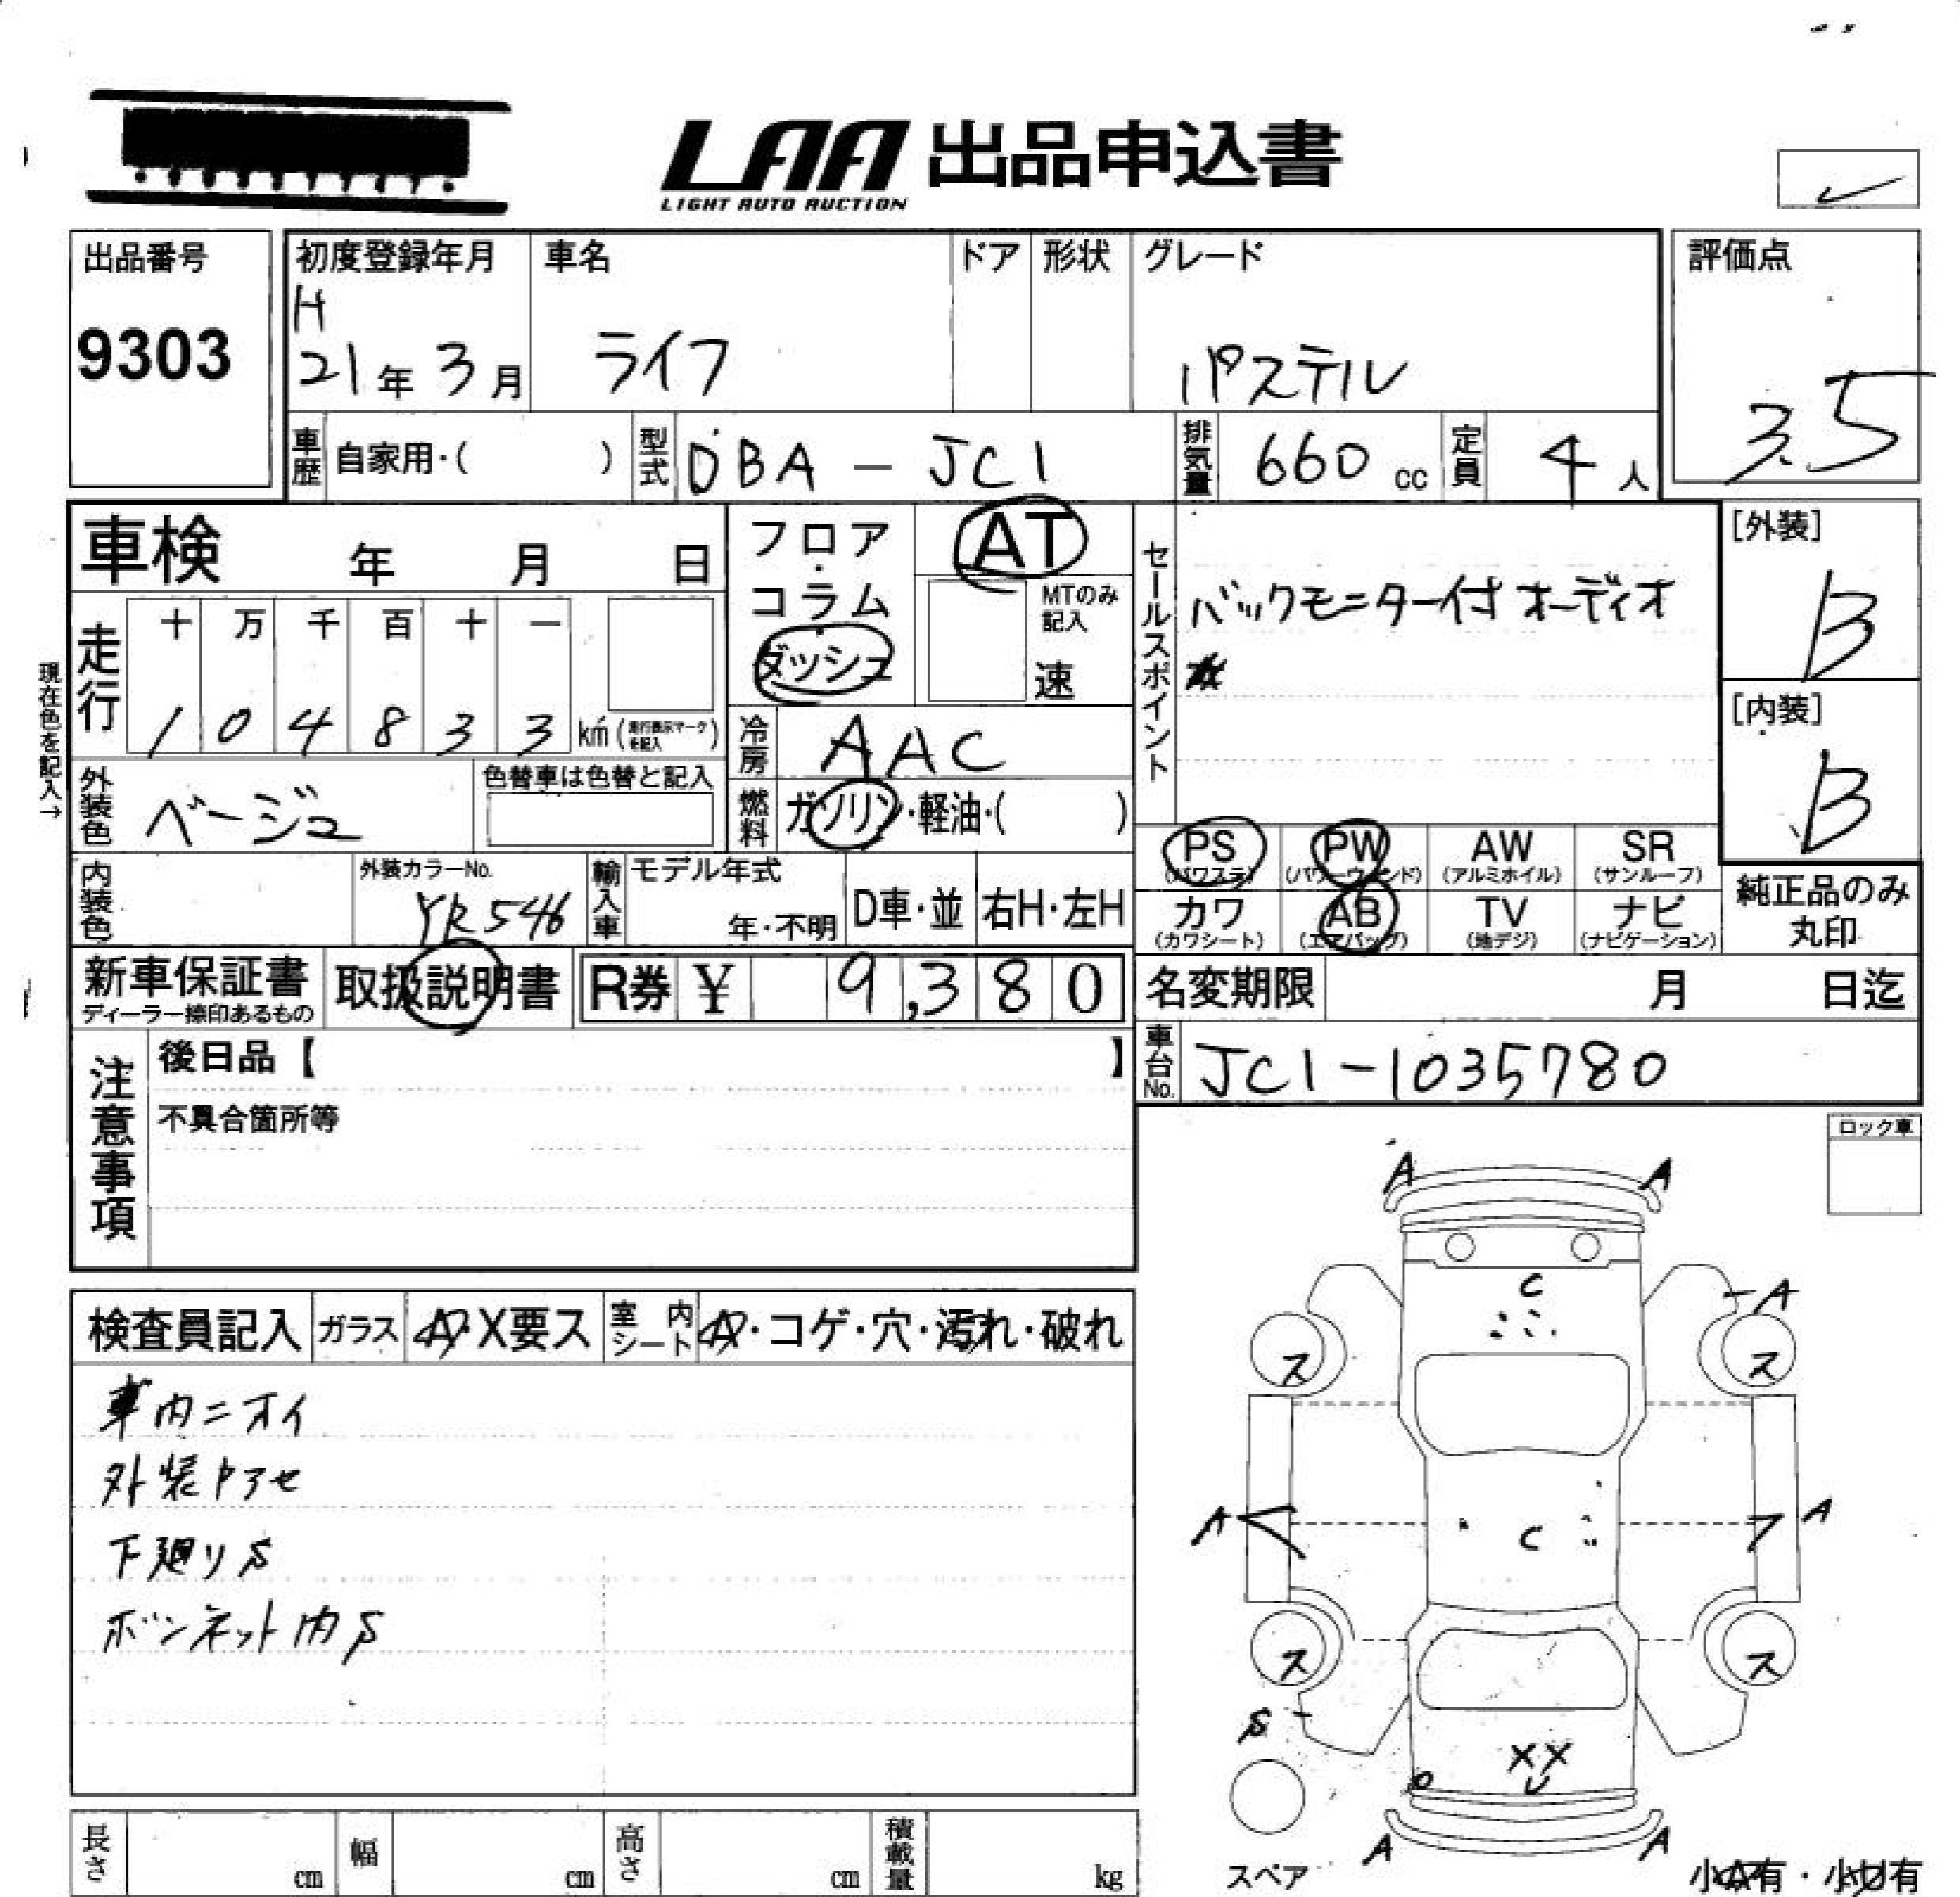 LAA 出品申込書
LIGHT AUTO AUCTION
出品番号
9303
初度登録年月
H
21年 3月
車名
ライフ
ドア
形状
グレード
パステル
評価点
3.5
車歴 自家用・( )
型式 DBA-JC1
排気量 660 cc
定員 4人
車検 年 月 日
フロア・コラム・ダッシュ
AT
MTのみ記入
速
セールスポイント
バックモニター付オーディオ
[外装]
B
[内装]
B
現在色を記入→
走行 十 万 千 百 十 一
1 0 4 8 3 3 km (走行表示マークを記入)
冷房 AAC
外装色 ベージュ
色替車は色替と記入
燃料 ガソリン・軽油・( )
PS (パワステ)
PW (パワーウィンド)
AW (アルミホイル)
SR (サンルーフ)
カワ (カワシート)
AB (エアバッグ)
TV (地デジ)
ナビ (ナビゲーション)
純正品のみ
丸印
内装色
外装カラーNo.
YR546
輸入車 モデル年式
年・不明
D車・並
右H・左H
新車保証書
ディーラー捺印あるもの
取扱説明書
R券 ¥ 9,380
名変期限 月 日迄
車台No. JC1-1035780
注意事項
後日品【 】
不具合箇所等
ロック車
検査員記入
ガラス A・X要ス
室内シート A・コゲ・穴・汚れ・破れ
車内ニオイ
外装
下廻りS
ボンネット内S
A
A
C
A
ス
ス
A
C
A
ス
ス
S
XX
U
A
A
スペア
小A有・小U有
長さ cm
幅 cm
高さ cm
積載量 kg